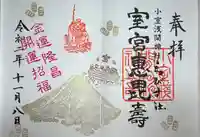 奉拝
小室浅間神社
室宮恵毘寿
金運隆昌
開運招福
令和二年十一月八日